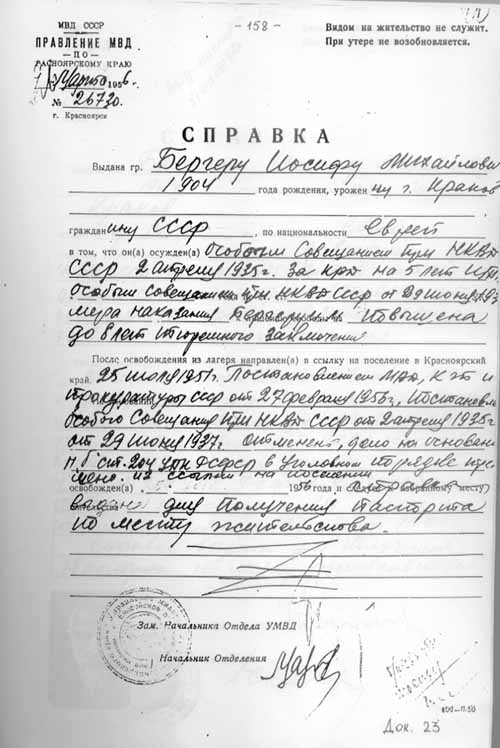 МВД СССР
ПРАВЛЕНИЕ МВД
— ПО —
РАСНОЯРСКОМУ КРАЮ
Марта 1956 г.
№ 26730.
г. Красноярск
- 158 -
Видом на жительство не служит.
При утере не возобновляется.
СПРАВКА
Выдана гр. Бергеру Иосифу Михайлови
1904 года рождения, урожен ну г. Краков
граждан ину СССР, по национальности Еврей
в том, что он(а) осужден(а) Особым Совещанием при НКВД
СССР 2 апреля 1935г. за КРД на 5 лет
особым совещанием при НКВД СССР от 29 июня 193
мера наказания
до 8 лет тюремного заключения
После освобождения из лагеря направлен(а) в ссылку на поселение в Красноярский
край. 25 июля 1951г. Постановлением МВД, КГБ и
прокуратуры СССР от 27 февраля 1956г,
Особого Совещания при НКВД СССР от 2 апреля 1935г
от 29 июня 1937г. отменено, дело на основани
п. б ст. 204 УПК РСФСР в уголовном порядке
из ссылки на поселении
освобожден(а) 1956 года и избранному месту
для получения паспорта
по месту жительства.
Зам. Начальника Отдела УМВД
Начальник Отделения
Док. 23